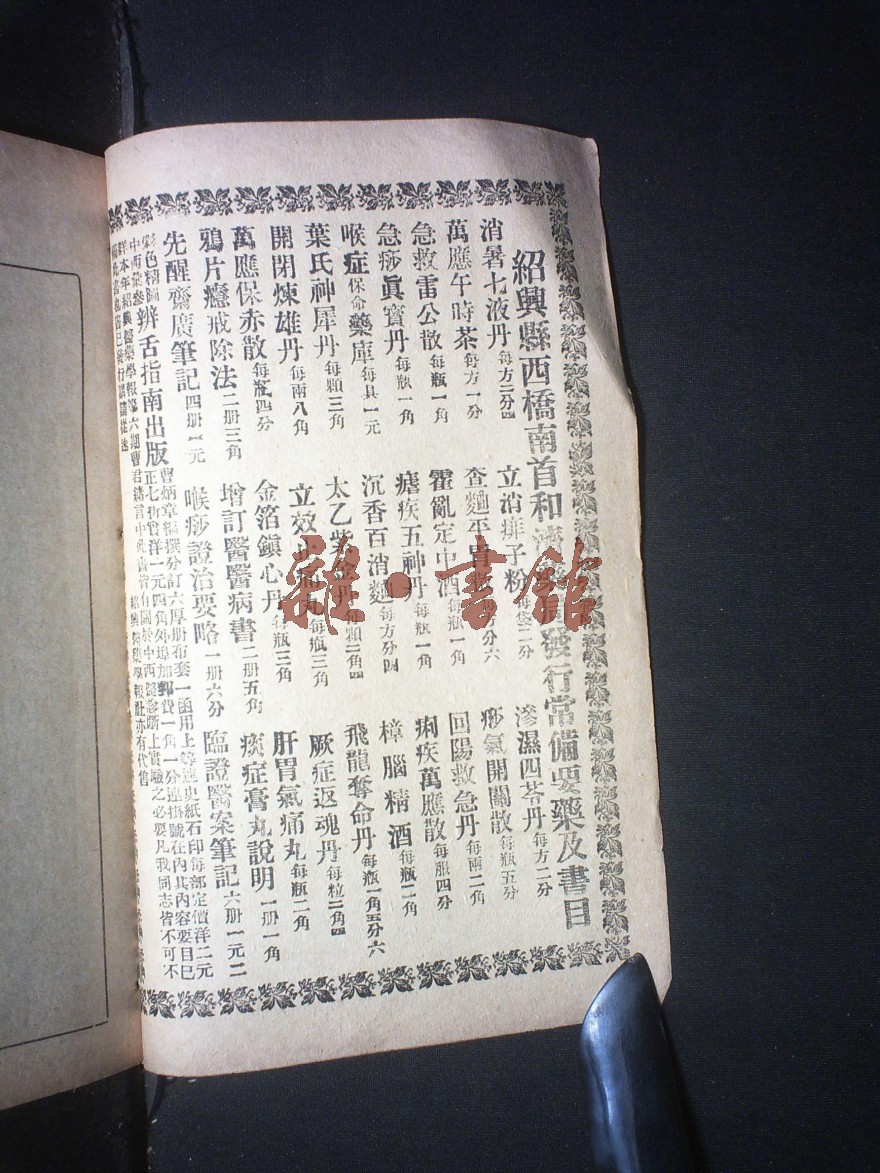 紹興縣西橋南首和濟藥局發行常備要藥及書目
消暑七液丹 每方二分四
立消痱子粉 每袋二分
滲濕四苓丹 每方二分
萬應午時茶 每方一分
查麯平胃散 每方分六
痧氣開關散 每瓶五分
急救雷公散 每瓶一角
霍亂定中酒 每瓶一角
回陽救急丹 每兩二角
急痧眞寶丹 每瓶一角
瘧疾五神丹 每瓶一角
痢疾萬應散 每服四分
喉症保命藥庫 每具一元
沉香百消麯 每方分四
樟腦精酒 每瓶二角
葉氏神犀丹 每顆三角
太乙紫金丹 每顆二角四
飛龍奪命丹 每瓶一角五分六
開閉煉雄丹 每兩八角
立效止痛丸 每瓶三角
厥症返魂丹 每粒二角四
萬應保赤散 每瓶四分
金箔鎭心丹 每瓶三角
肝胃氣痛丸 每瓶二角
鴉片癮戒除法 二册三角
增訂醫醫病書 二册五角
痰症膏丸說明 一册一角
先醒齋廣筆記 四册一元
喉痧證治要略 一册六分
臨證醫案筆記 六册一元二
彩色精圖
中西彙參辨舌指南出版
曹炳章編撰分訂六厚册布套一函用上等連史紙石印每部定價洋二元
正七折實洋一元四角外埠加郵費一角一分連掛號在內其內容要目已
詳本年紹興醫藥學報第六期曹君緖言中此書皆有關於中西醫診斷上實驗之必要凡我同志皆不可不
紹興醫藥學報社亦有代售
雜·書館